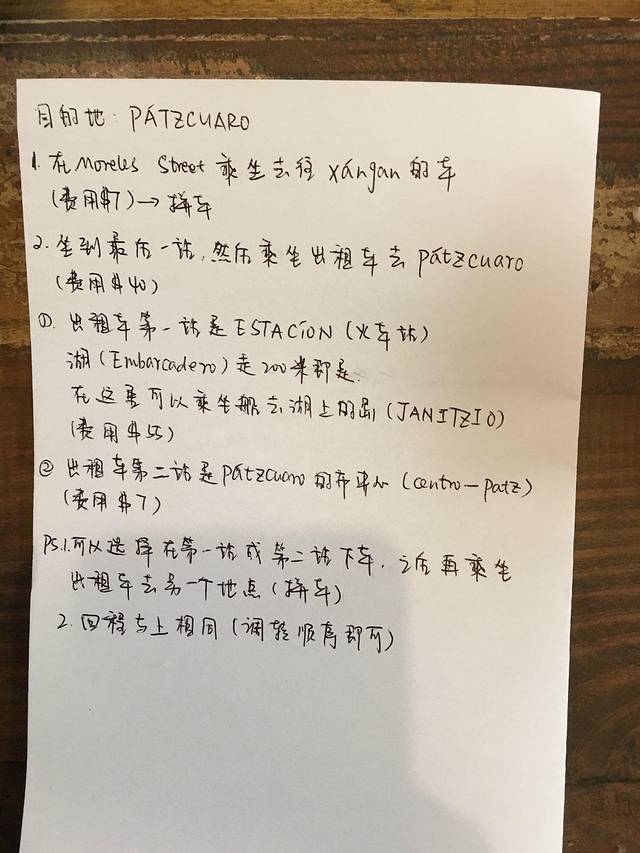 目的地: PÁTZCUARO
1. 在Moreles Street 乘坐去往 xángan 的车
(费用$7)→拼车
2. 坐到最后一站,然后乘坐出租车去 pátzcuaro
(费用$40)
①. 出租车第一站是ESTACÍON (火车站)
湖(Embarcadero)走200米即是.
在这里可以乘坐船去湖上的岛(JANITZIO)
(费用$55)
② 出租车第二站是pátzcuaro的市中心 (centro-patz)
(费用$7)
PS.1.可以选择在第一站或第二站下车, 之后再乘坐
出租车去另一个地点(拼车)
2. 回程与上相同(调整顺序即可)